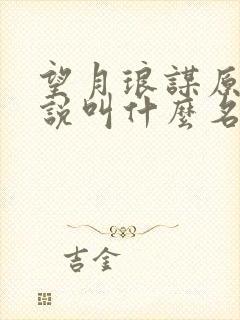 望月琅謀原
說叫什麼名
吉金